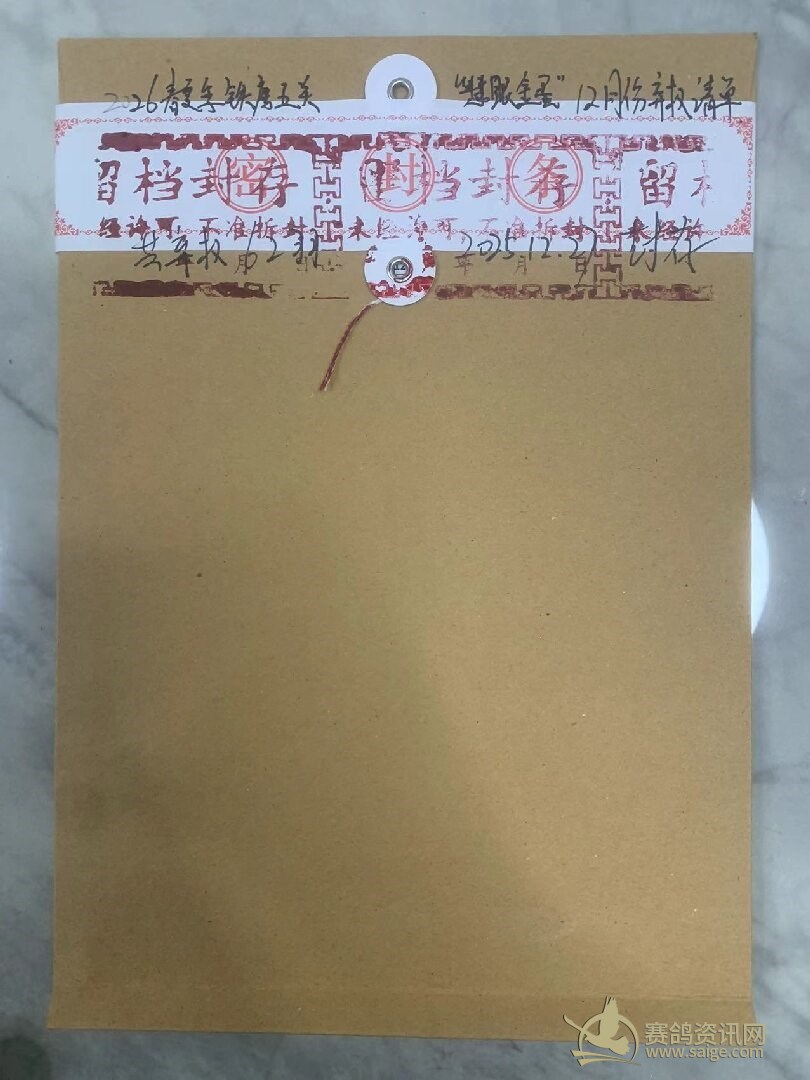 2026春季铁鹰五关 "慧眼金蛋" 12月份弃权清单
密 封 条
留档封存 留档封存 留档
经许可 不准拆封 未经许可 不准拆封 未经许
共弃权 62羽 2025.12.27 封存
年 月 日
赛鸽资讯网
www.saige.com